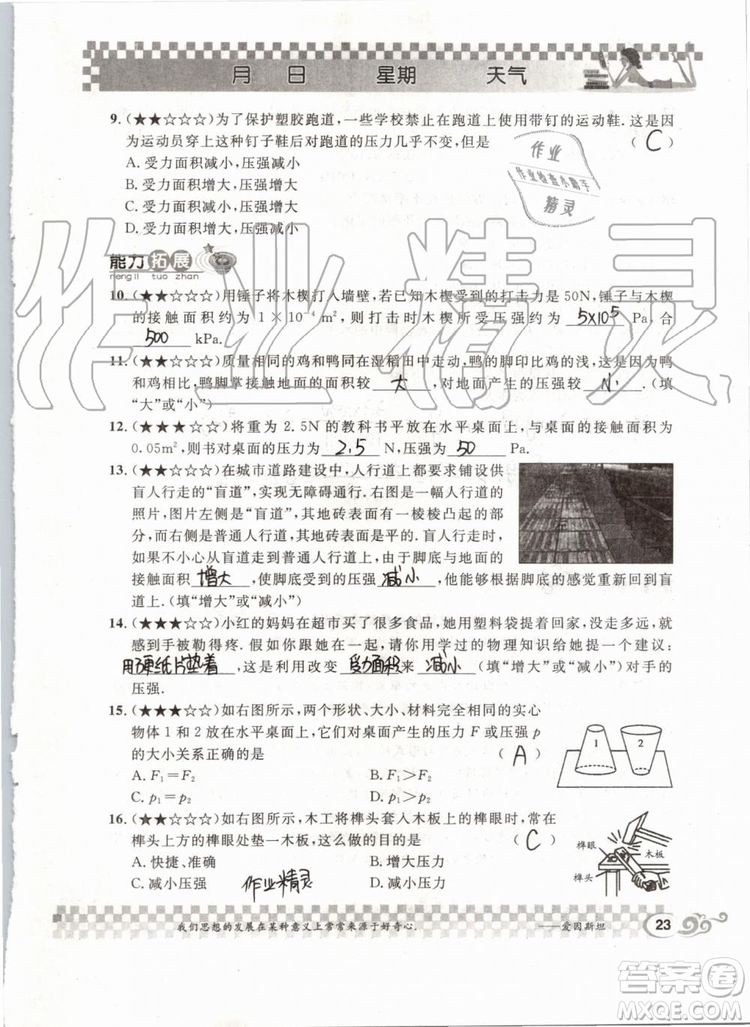 月 日 星期 天气
9. (★★☆☆☆)为了保护塑胶跑道，一些学校禁止在跑道上使用带钉的运动鞋. 这是因
为运动员穿上这种钉子鞋后对跑道的压力几乎不变，但是 ( C )
A. 受力面积减小，压强减小
B. 受力面积增大，压强增大
C. 受力面积减小，压强增大
D. 受力面积增大，压强减小
作业
作业检查小助手
精灵
能力拓展
neng li tuo zhan
10. (★★☆☆☆)用锤子将木楔打入墙壁，若已知木楔受到的打击力是 50N，锤子与木楔
的接触面积约为 1×10⁻⁴ m²，则打击时木楔所受压强约为 5×10⁵ Pa，合
500 kPa.
11. (★★☆☆☆)质量相同的鸡和鸭同在湿稻田中走动，鸭的脚印比鸡的浅，这是因为鸭
和鸡相比，鸭脚掌接触地面的面积较 大 ，对地面产生的压强较 小 .(填
“大”或“小”)
12. (★★☆☆☆)将重为 2.5N 的教科书平放在水平桌面上，与桌面的接触面积为
0.05m²，则书对桌面的压力为 2.5 N，压强为 50 Pa.
13. (★★☆☆☆)在城市道路建设中，人行道上要求铺设供
盲人行走的“盲道”，实现无障碍通行. 右图是一幅人行道的
照片，图片左侧是“盲道”，其地砖表面有一棱棱凸起的部
分，右侧是普通人行道，其地砖表面是平的. 盲人行走时，
如果不小心从盲道走到普通人行道上，由于脚底与地面的
接触面积 增大 ，使脚底受到的压强 减小 ，他能够根据脚底的感觉重新回到盲
道上.(填“增大”或“减小”)
14. (★★★☆☆)小红的妈妈在超市买了很多食品，她用塑料袋提着回家，没走多远，就
感到手被勒得疼. 假如你跟她在一起，请你用学过的物理知识给她提一个建议：
用硬纸片垫着 ，这是利用改变 受力面积 来 减小 (填“增大”或“减小”)对手的
压强.
15. (★★★☆☆)如右图所示，两个形状、大小、材料完全相同的实心
物体 1 和 2 放在水平桌面上，它们对桌面产生的压力 F 或压强 p
的大小关系正确的是 ( A )
A. F₁＝F₂ B. F₁＞F₂
C. p₁＝p₂ D. p₁＞p₂
1 2
16. (★★★☆☆)如右图所示，木工将榫头套入木板上的榫眼时，常在
榫头上方的榫眼处垫一木板，这么做的目的是 ( C )
A. 快捷、准确 B. 增大压力
C. 减小压强 D. 减小压力
作业精灵
榫眼
木板
榫头
我们思想的发展在某种意义上常常来源于好奇心.
——爱因斯坦
23
作业精灵
答案圈
MXQE.COM